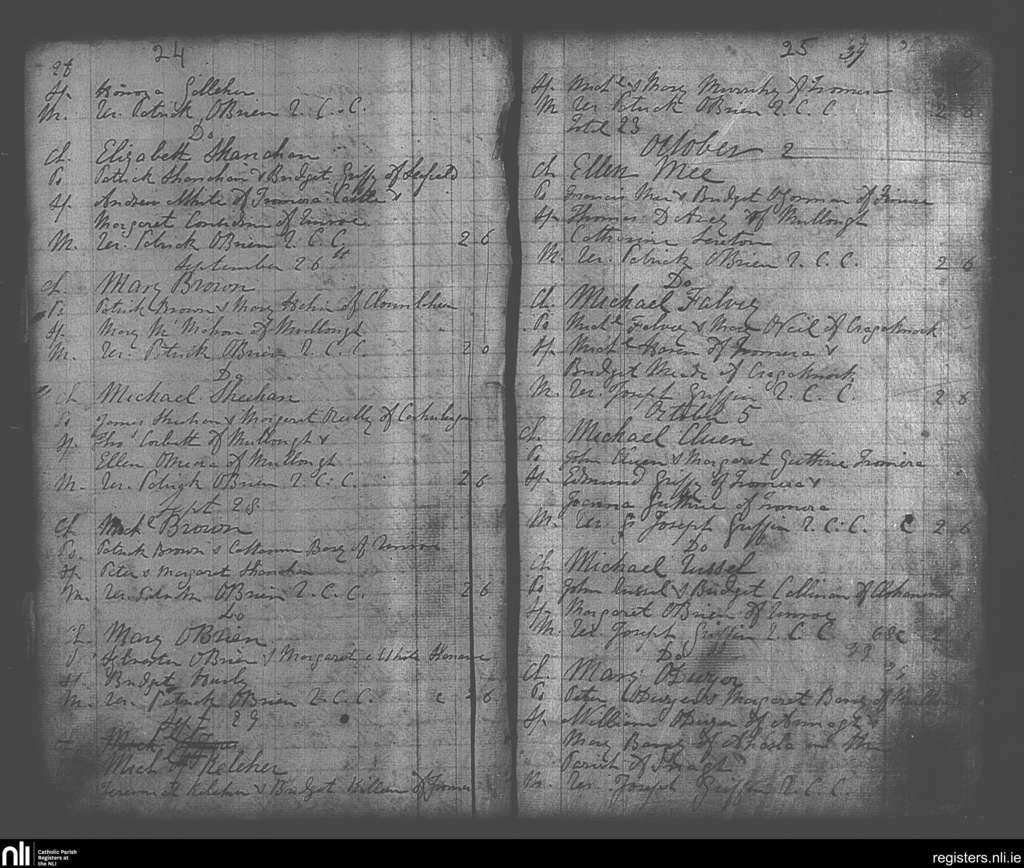 24
Sp. Honora Gelleher
M. Ver. Patrick OBrien R. C. C.
Do
Ch. Elizabeth Shanahan
Ps Patrick Shanahan & Bridget Griffy of Seafield
Sp. Andrew White of Tromora Castle &
Margaret Considine of Emroe
M. Ver. Patrick OBrien R. C. C. 2 6
September 26th
Ch. Mary Brown
Ps Patrick Brown & Mary
Sp. Mary Mc Mahon of Mullough
M. Ver. Patrick OBrien R. C. C. 2 0
Do
Ch. Michael Sheehan
Ps James Sheehan & Margaret Reilly of
Sp. Thos Corbett of Mullough &
Ellen OMera of Mullough
M. Ver. Patrick OBrien R. C. C. 2 6
Sept 28
Ch. Michl Brown
Ps. Patrick Brown & Catherine Barry of
Sp. Peter & Margaret Shanahan
M. Ver. Patrick OBrien R. C. C. 2 6
Do
Ch. Mary OBrien
P Sylvester OBrien & Margaret White
Sp. Bridget Hurly
M. Ver. Patrick OBrien R. C. C. 2 6
Sept 29
Mich
Mich Kelcher
Jeremiah Kelcher & Bridget Killeen of
25 39
Sp. Michl & Mary Murrihy of Tromora
M Ver. Patrick OBrien R. C. C. 2 6
Total 23
October 2
Ch Ellen Mee
Ps Francis Mee & Bridget OGorman of
Sp. Thomas DArcy of Mullough
Catherine Sexton
M. Ver. Patrick OBrien R. C. C. 2 6
Do
Ch. Michael Falvey
Ps Michl Falvey & Mary ONeil of Craggaknock
Sp. Michl Haren of Tromora &
Bridget Meade of Craggaknock
M. Ver. Joseph Griffin R. C. C. 2 6
October 5
Ch. Michael Cluen
Ps John Cluen & Margaret Guthrie Tromora
Sp. Edmund Griffy of Tromora &
Joanna Guthrie of Tromora
M. Ver. Joseph Griffin R. C. C. C 2 6
Do
Ch Michael Russel
Ps John Russel & Bridget Callinan of
Sp. Margaret OBrien of Emroe
M. Ver. Joseph Griffin R. C. C. 2 6
Do
Ch. Mary ODwyer
Ps Peter ODwyer & Margaret Barry of
Sp. William ODwyer of &
Mary Barry of in the
Parish of
M. Ver. Joseph Griffin R. C. C.
nli
Catholic Parish
Registers at
the NLI
registers.nli.ie